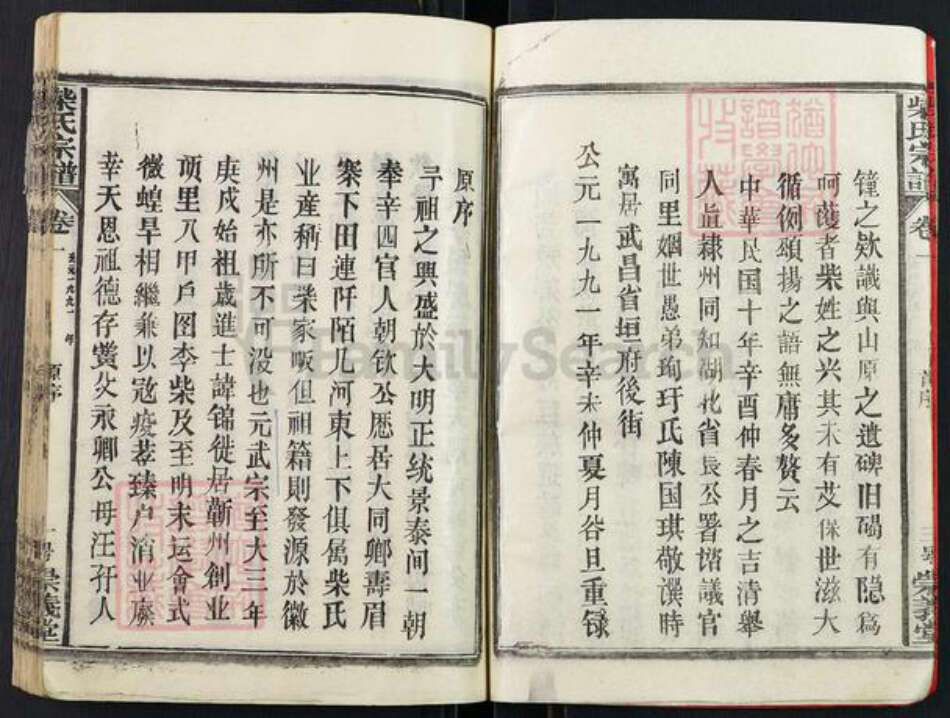 柴氏宗譜
卷一
鐘之欵識與山原之遺碑旧碣有隐爲
呵護者柴姓之兴其未有艾保世滋大
循例頌揚之語無庸多贅云
中華民国十年辛酉仲春月之吉清舉
人直隸州同知湖北省長公署諮議官
同里姻世愚弟珣玗氏陳国琪敬譔時
寓居武昌省垣府後街
公元一九九一年辛未仲夏月谷旦重録
三号
崇義堂
原序
予祖之興盛於大明正统景泰间一朝
奉辛四官人朝钦公歷居大同卿壽眉
寨下田連阡陌几河東上下俱属柴氏
业產稱曰柴家畈但祖籍則發源於徽
州是亦所不可没也元武宗至大三年
庚戌始祖歲進士諱锦徙居蘄州创业
项里又甲户图李柴及至明末运會式
微蝗旱相繼兼以寇疫荐臻户消业廢
幸天恩祖德存賞父永卿公母汪孖人
柴氏宗譜
卷一
公元一九九一年
原序
一号
崇義堂
FamilySearch